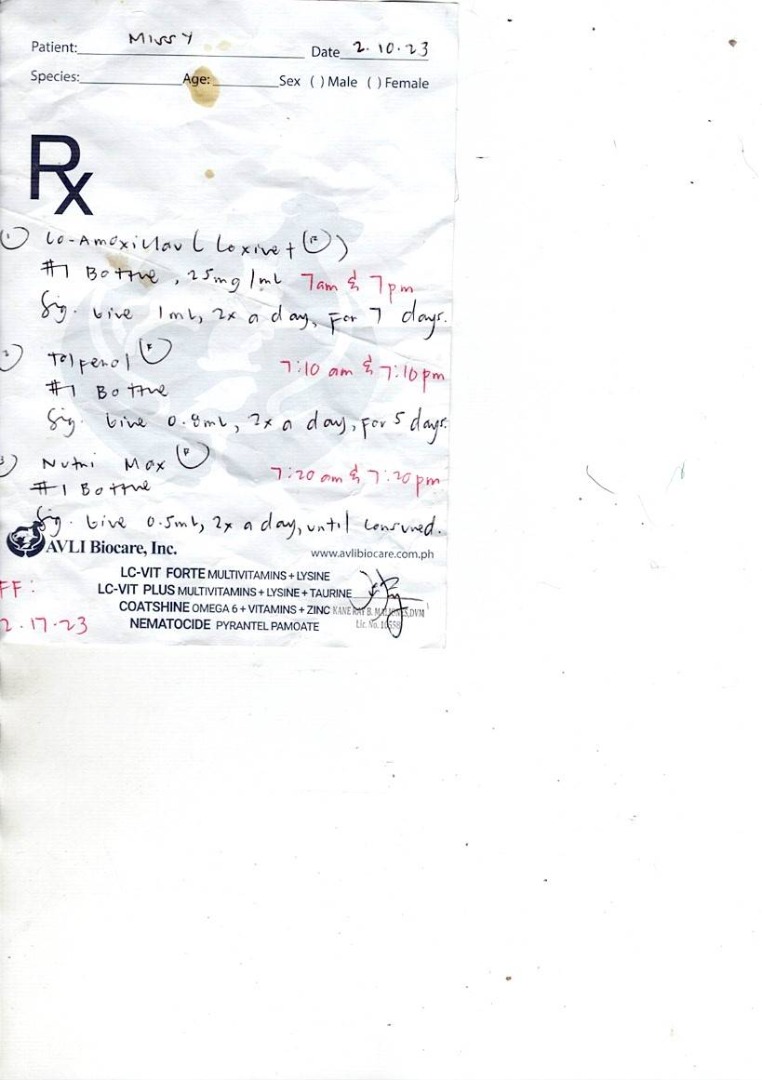 Patient: Missy Date 2.10.23
Species: Age: Sex ( ) Male ( ) Female
Rx
1 Co-Amoxiclav ( Coxivet (R) )
#1 Bottle, 25mg/mL 7am & 7pm
Sig. Give 1mL, 2x a day, for 7 days.
2 Tolfenol (R) 7:10 am & 7:10pm
#1 Bottle
Sig. Give 0.8mL, 2x a day, for 5 days.
3 Nutri Max (R) 7:20 am & 7:20pm
#1 Bottle
Sig. Give 0.5mL, 2x a day, until consumed.
AVLI Biocare, Inc. www.avlibiocare.com.ph
LC-VIT FORTE MULTIVITAMINS + LYSINE
FF: LC-VIT PLUS MULTIVITAMINS + LYSINE + TAURINE
COATSHINE OMEGA 6 + VITAMINS + ZINC B. DVM
2.17.23 NEMATOCIDE PYRANTEL PAMOATE Lic. No.